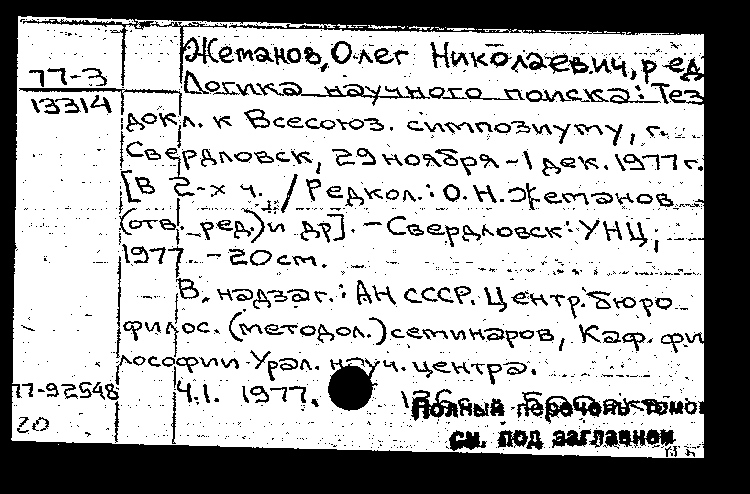 Жетанов, Олег Николаевич, ред
77-3
13314
Логика научного поиска: Тез
докл. к Всесоюз. симпозиуму, г.
Свердловск, 29 ноября - 1 дек. 1977 г.
[В 2-х ч. / Редкол.: О.Н. Жетанов
(отв. ред.) и др]. - Свердловск: УНЦ,
1977 - 20 см.
В надзаг.: АН СССР. Центр. бюро
филос. (методол.) семинаров, Каф. фи
лософии Урал. науч. центра.
77-92548
Ч.1. 1977.
20
Полный перечень томов
см. под заглавием